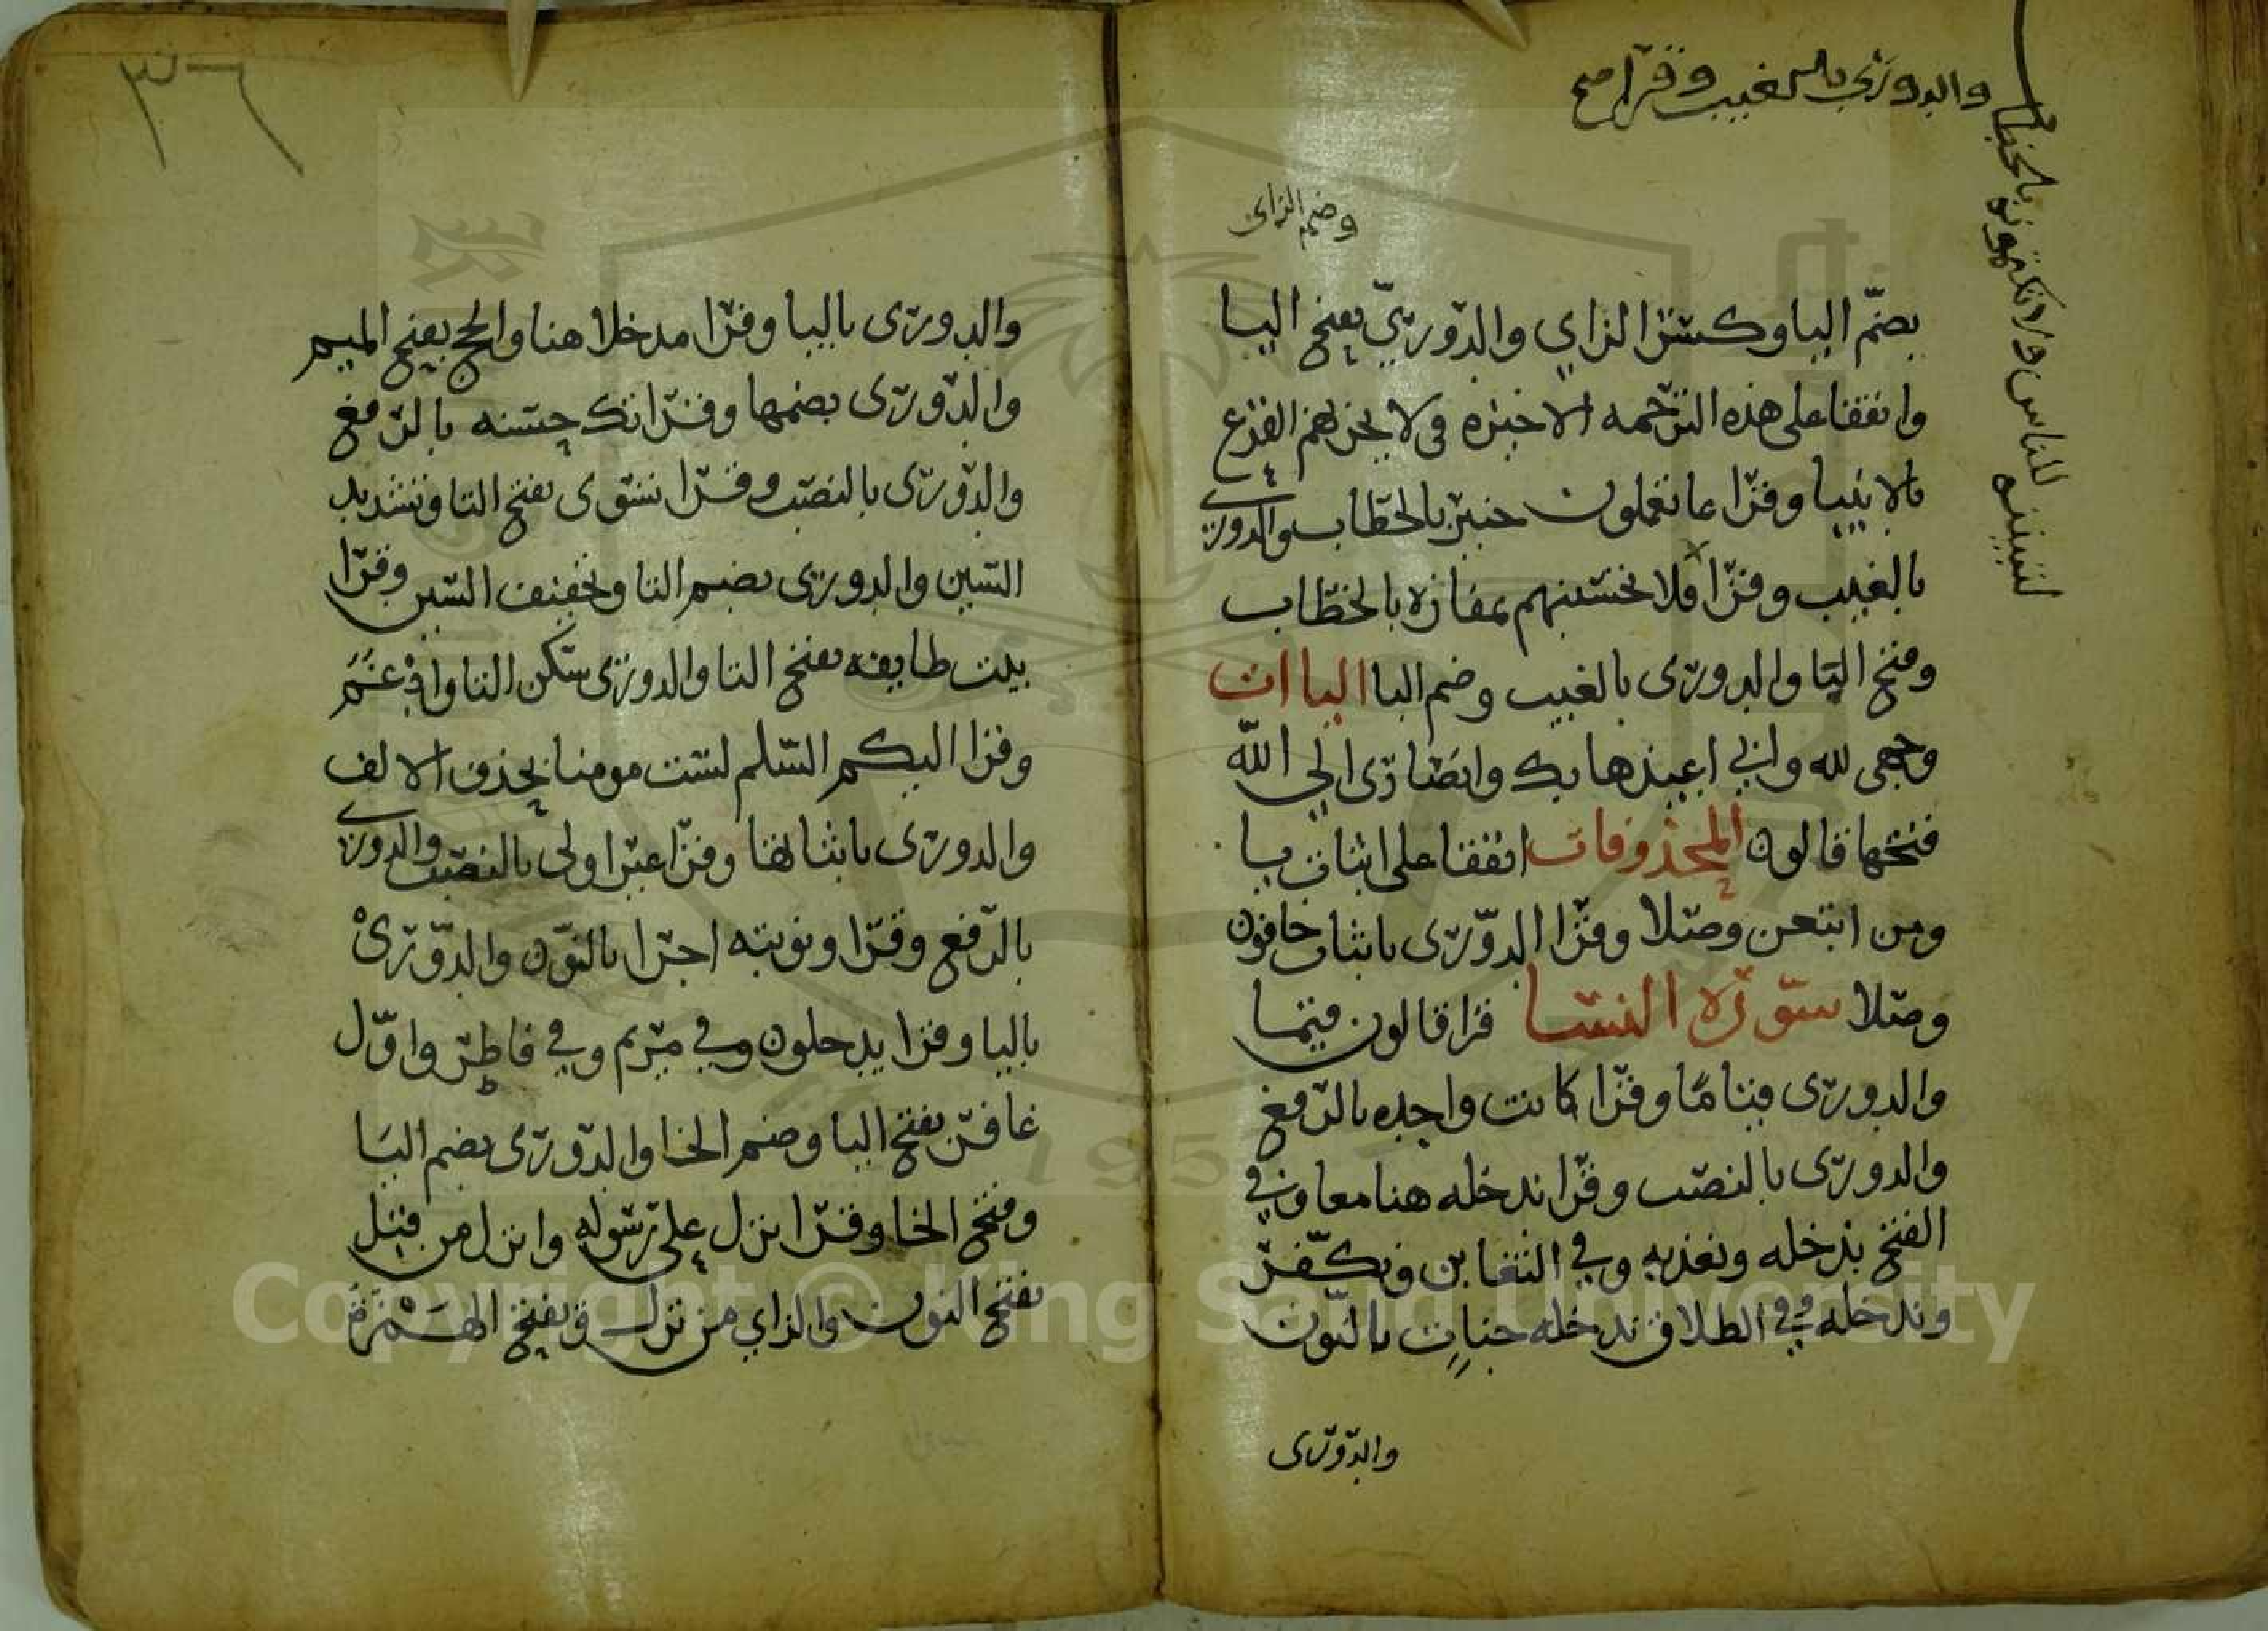 والدورى بالغيب وقرا صح
لتبيننه للناس ولا تكتمونه بالخطاب
وضم الزاى
بضم اليا وكسر الزاي والدوري بفتح اليا
واتفقا على هذه الترجمه الاخيره في لا يحزنهم الفزع
بالانبيا وقرا بما تعملون خبير بالخطاب والدورى
بالغيب وقرا فلا تحسبنهم بمفازه بالخطاب
وفتح البا والدورى بالغيب وضم البا الياات
وجهى لله واني اعيذها بك وانصارى الى الله
فتحها قالون المحذوفات اتفقا على اثبات يا
ومن اتبعن وصلا وقرا الدورى باثبات خافون
وصلا سورة النسا قرا قالون قيما
والدورى قياما وقرا كانت واحده بالرفع
والدورى بالنصب وقرا ندخله هنا معا وفي
الفتح ندخله ونعذبه وفي التغابن ونكفر
وندخله وفي الطلاق ندخله جنات بالنون
والدورى
٣٦
والدورى باليا وقرا مدخلا هنا والحج بفتح الميم
والدورى بضمها وقرا تك حسنه بالرفع
والدورى بالنصب وقرا تسوى بفتح التا وتشديد
السين والدورى بضم التا وتخفيف السين وقرا
بيت طايفه بفتح التا والدورى سكن التا وادغم
وقرا اليكم السلم لست مومنا بحذف الالف
والدورى باثباتها وقرا غير اولى بالنصب والدورى
بالرفع وقرا ونوتيه اجرا بالنون والدورى
باليا وقرا يدخلون وفي مريم وفي فاطر واول
غافر بفتح اليا وضم الخا والدورى بضم اليا
وفتح الخا وقرا نزل على رسوله وانزل من قبل
بفتح النون والزاي من نزل وبفتح الهمزة
Copyright © King Saud University
195